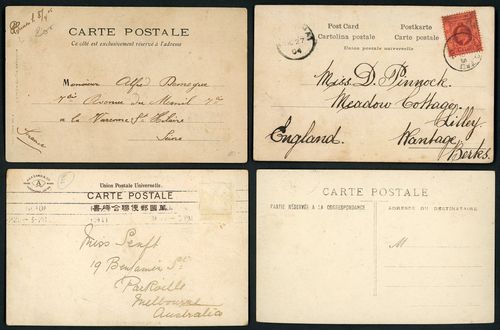 CARTE POSTALE
Ce côté est exclusivement réservé à l'adresse
Monsieur Alfred
Avenue du Mesnil
a la Varenne St Hilaire
Seine
France
Post Card Postkarte
Cartolina postale Carte postale
Union postale universelle.
04
Miss. D. Pinnock.
Meadow Cottage.
Lilley
England. Wantage
Berks.
A
Union Postale Universelle.
CARTE POSTALE
Miss Senft
19 Benjamin St
Parkville
Melbourne
Australia
CARTE POSTALE
PARTIE RÉSERVÉE A LA CORRESPONDANCE
ADRESSE DU DESTINATAIRE
M